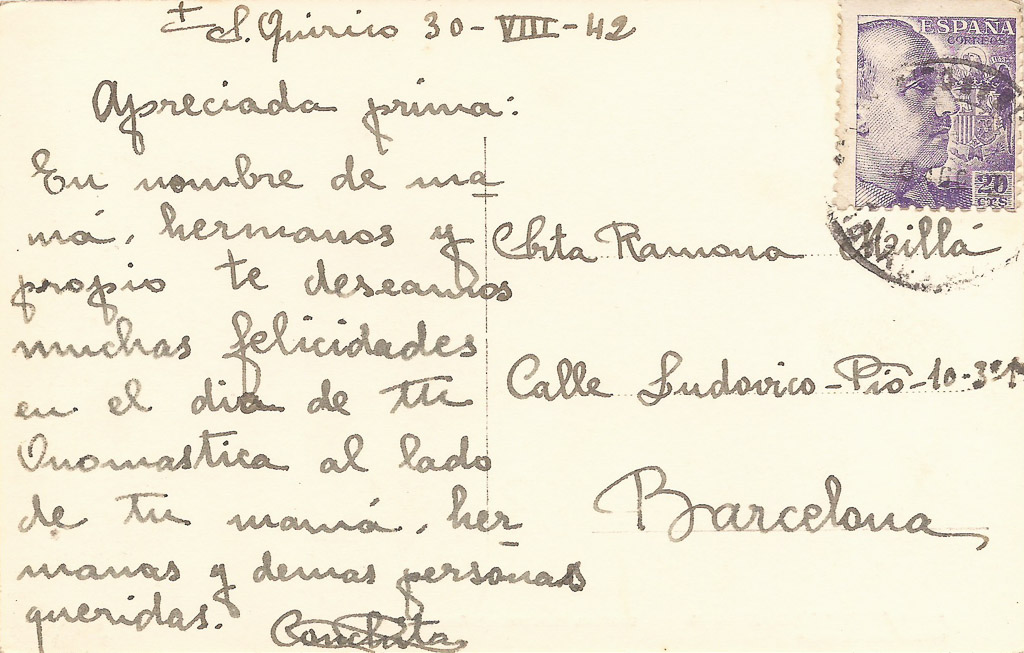 S. Quirico 30-VIII-42
Apreciada prima:
En nombre de ma
má, hermanos y
propio te deseamos
muchas felicidades
en el dia de tu
Onomastica al lado
de tu mamá, her
manas y demas personas
queridas.
Conchita
ESPAÑA
CORREOS
20
CTS
Ramona
Calle Ludovico-Pio-10-3º1ª
Barcelona